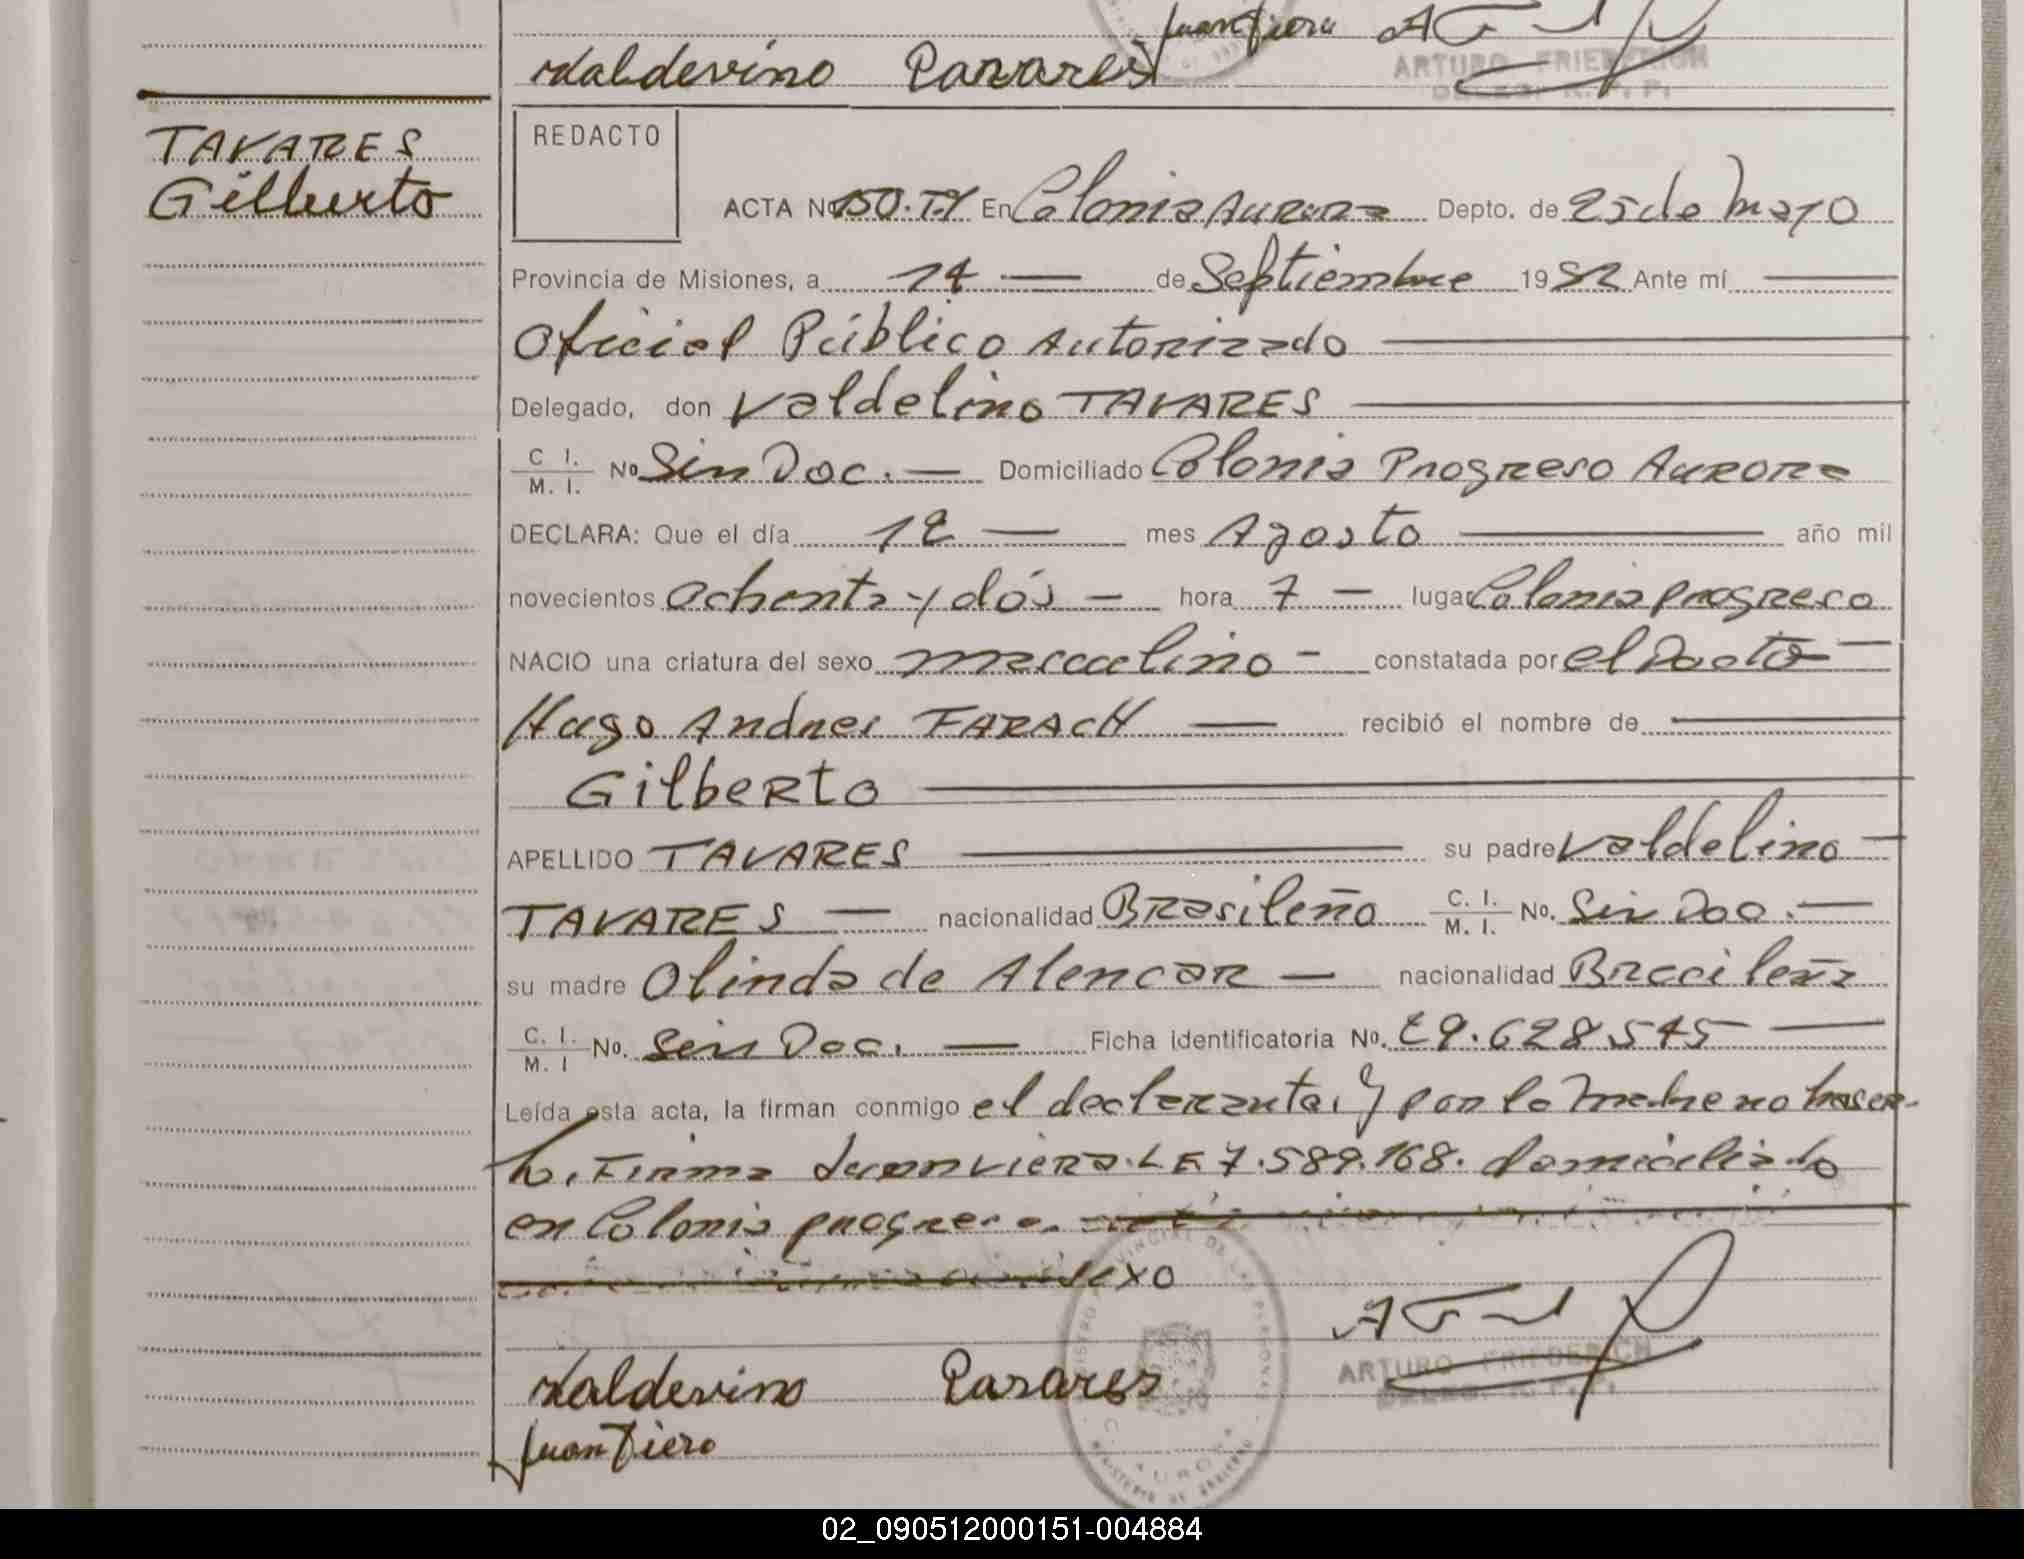 Juan Viera
Valdevino Pavares
ARTURO FRIEDERICH
DELEG. R. P. P.
TAVARES
Gilberto
REDACTO
ACTA Nº 150.TY En Colonia Aurora Depto. de 25 de Mayo
Provincia de Misiones, a 14 — de Septiembre 1982 Ante mí —
Oficial Público Autorizado —
Delegado, don Valdelino TAVARES —
C. I. / M. I. Nº Sin Doc. — Domiciliado Colonia Progreso Aurora
DECLARA: Que el día 12 — mes Agosto — año mil
novecientos ochenta y dós — hora 7 — lugar Colonia progreso
NACIO una criatura del sexo masculino — constatada por el Doctor —
Hugo Andres FARACH — recibió el nombre de —
Gilberto —
APELLIDO TAVARES — su padre Valdelino —
TAVARES — nacionalidad Brasileño C. I. / M. I. No. Sin Doc. —
su madre Olinda de Alencar — nacionalidad Brasileña
C. I. / M. I No. Sin Doc. — Ficha identificatoria No. 29.628.545 —
Leída esta acta, la firman conmigo el declarante, y por la madre no haser-
lo, Firma Juan Viera. L E 7.589.168. domiciliado
en Colonia progreso.
sexo
ARTURO FRIEDERICH
DELEG. R. P. P.
Valdevino Pavares
Juan Viera
REGISTRO PROVINCIAL DE LAS PERSONAS
C. AURORA
MINISTERIO DE GOBIERNO
02_090512000151-004884